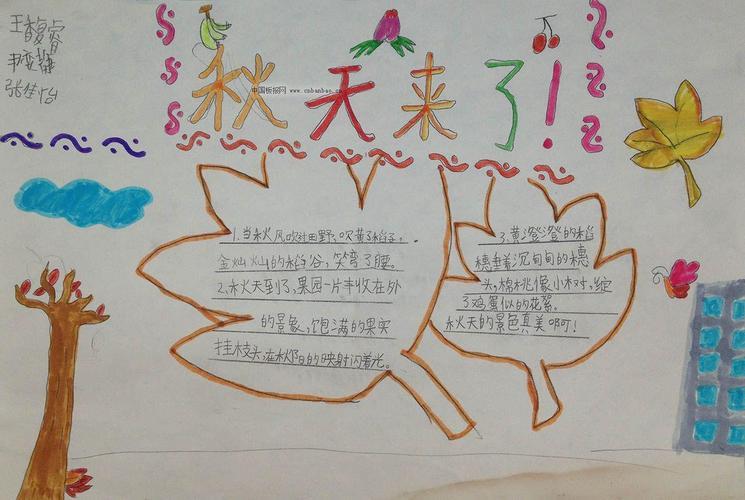 王馥睿
张佳怡
秋天来了!
中国板报网 www.cnbanbao.cn
1.当秋风吹过田野,吹黄了稻子,
金灿灿的稻谷,笑弯了腰。
2.秋天到了,果园一片丰收在外
的景象,饱满的果实
挂枝头,在秋阳的映射闪着光。
3.黄澄澄的稻
穗垂着沉甸甸的穗
头,棉桃像小树,绽
了鸡蛋似的花絮。
秋天的景色真美啊!